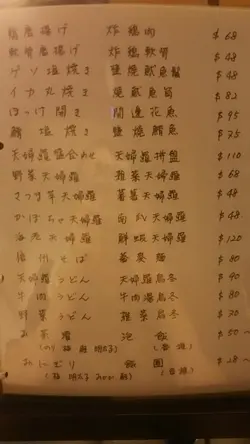 鶏唐揚げ 炸鶏肉 $68
軟骨唐揚げ 炸鶏軟骨 $48
ゲソ塩焼き 鹽燒魷魚鬚 $48
イカ丸焼き 燒魷魚筒 $82
ほっけ開き 開邊花魚 $95
鯖塩焼き 鹽燒鯖魚 $75
天婦羅盛合わせ 天婦羅拼盤 $110
野菜天婦羅 雜菜天婦羅 $68
さつま芋天婦羅 蕃薯天婦羅 $48
かぼちゃ天婦羅 南瓜天婦羅 $48
海老天婦羅 鮮蝦天婦羅 $120
信州そば 蕎麥麵 $80
天婦羅うどん 天婦羅烏冬 $90
牛肉うどん 牛肉湯烏冬 $80
野菜うどん 雜菜烏冬 $70
お茶漬 泡飯 $50~
(のり 梅 鮭 明太子)
おにぎり 飯團 $28~
(梅 明太子 おかか 鮭)